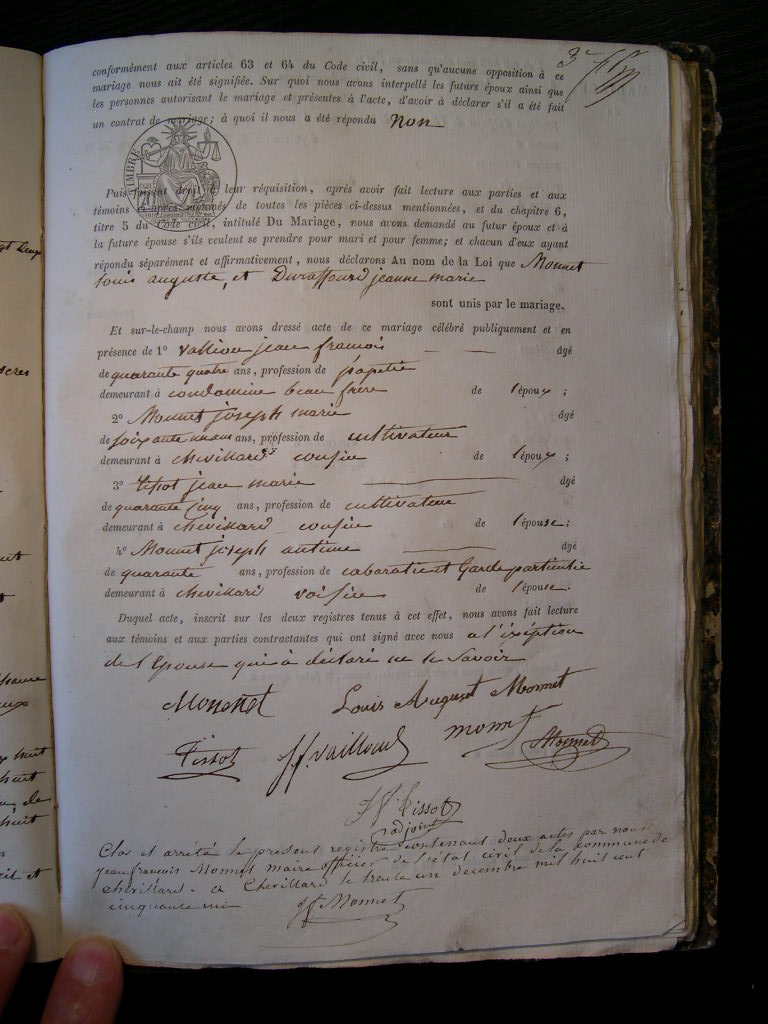 3e
conformément aux articles 63 et 64 du Code civil, sans qu'aucune opposition à ce
mariage nous ait été signifiée. Sur quoi nous avons interpellé les futurs époux ainsi que
les personnes autorisant le mariage et présentes à l'acte, d'avoir à déclarer s'il a été fait
un contrat de mariage; à quoi il nous a été répondu non
TIMBRE
Puis faisant droit à leur réquisition, après avoir fait lecture aux parties et aux
témoins ci-après nommés de toutes les pièces ci-dessus mentionnées, et du chapitre 6,
titre 5 du Code civil, intitulé Du Mariage, nous avons demandé au futur époux et à
la future épouse s'ils veulent se prendre pour mari et pour femme; et chacun d'eux ayant
répondu séparément et affirmativement, nous déclarons Au nom de la Loi que Monnet
louis auguste, et Duraffourd jeanne marie
sont unis par le mariage.
Et sur-le-champ nous avons dressé acte de ce mariage célébré publiquement et en
présence de 1° jean francois âgé
de quarante quatre ans, profession de papetié
demeurant à condamine beau frère de l'époux;
2° Monnet joseph marie âgé
de soixante ans, profession de cultivateur
demeurant à chevillard cousin de l'époux;
3° tissot jean marie âgé
de quarante cinq ans, profession de cultivateur
demeurant à chevillard cousin de l'épouse;
4° Monnet joseph antime âgé
de quarante ans, profession de cabaratié et Garde particulié
demeurant à chevillard voisin de l'épouse.
Duquel acte, inscrit sur les deux registres tenus à cet effet, nous avons fait lecture
aux témoins et aux parties contractantes qui ont signé avec nous a l'éxéption
de l'Epouse qui à déclaré ne le savoir
Monnet Louis August Monnet
Tissot jf. vailloud monet Monnet
Tissot
adjoint
Clos et arrêté le présent registre contenant deux actes par nous
jean françois Monnet maire officier de l'état civil de la commune de
chevillard. a Chevillard le trente un decembre mil huit cent
cinquante jf Monnet